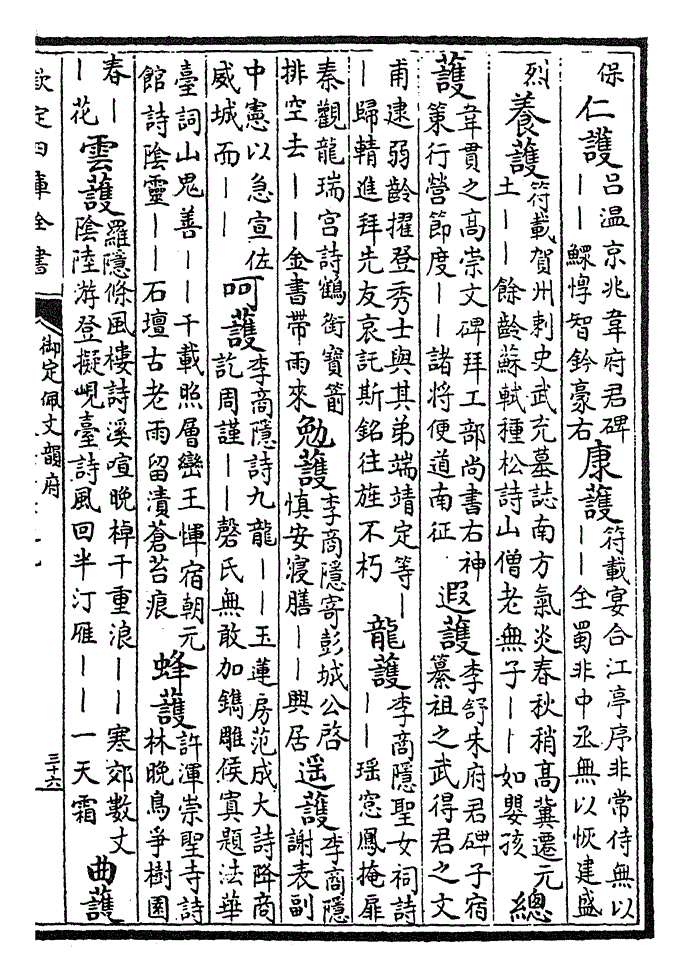 保仁護呂溫京兆韋府君碑——鰥惸智鈐豪右康護符載宴合江亭序非常侍無以——全蜀非中丞無以恢建盛
烈養護符載賀州刺史武充墓誌南方氣炎春秋稍高冀遷元土——餘齡蘇軾種松詩山僧老無子——如嬰孩總
護韋貫之高崇文碑拜工部尚書右神策行營節度——諸將便道南征遐護李舒朱府君碑子宿纂祖之武得君之文
甫逮弱齡擢登秀士與其弟端靖定等——歸輤進拜先友哀託斯銘往旌不朽龍護李商隱聖女祠詩——瑶窓鳳掩扉
秦觀龍瑞宮詩鶴銜寶箭排空去——金書帶雨來勉護李商隱寄彭城公啓慎安寢膳——興居遥護李商隱謝表副
中憲以急宣佐威城而——呵護李商隱詩九龍——玉蓮房范成大詩降商訖周謹——磬氏無敢加鐫雕侯寘題法華
臺詞山鬼善——千載照層巒王惲宿朝元館詩陰靈——石壇古老雨留漬蒼苔痕蜂護許渾崇聖寺詩林晚鳥爭樹園
春——花雲護羅隱條風樓詩溪喧晚棹千重浪——寒郊數丈陰陸游登擬峴臺詩風回半汀雁——一天霜曲護
欽定四庫全書
御定佩文韻府
三十六